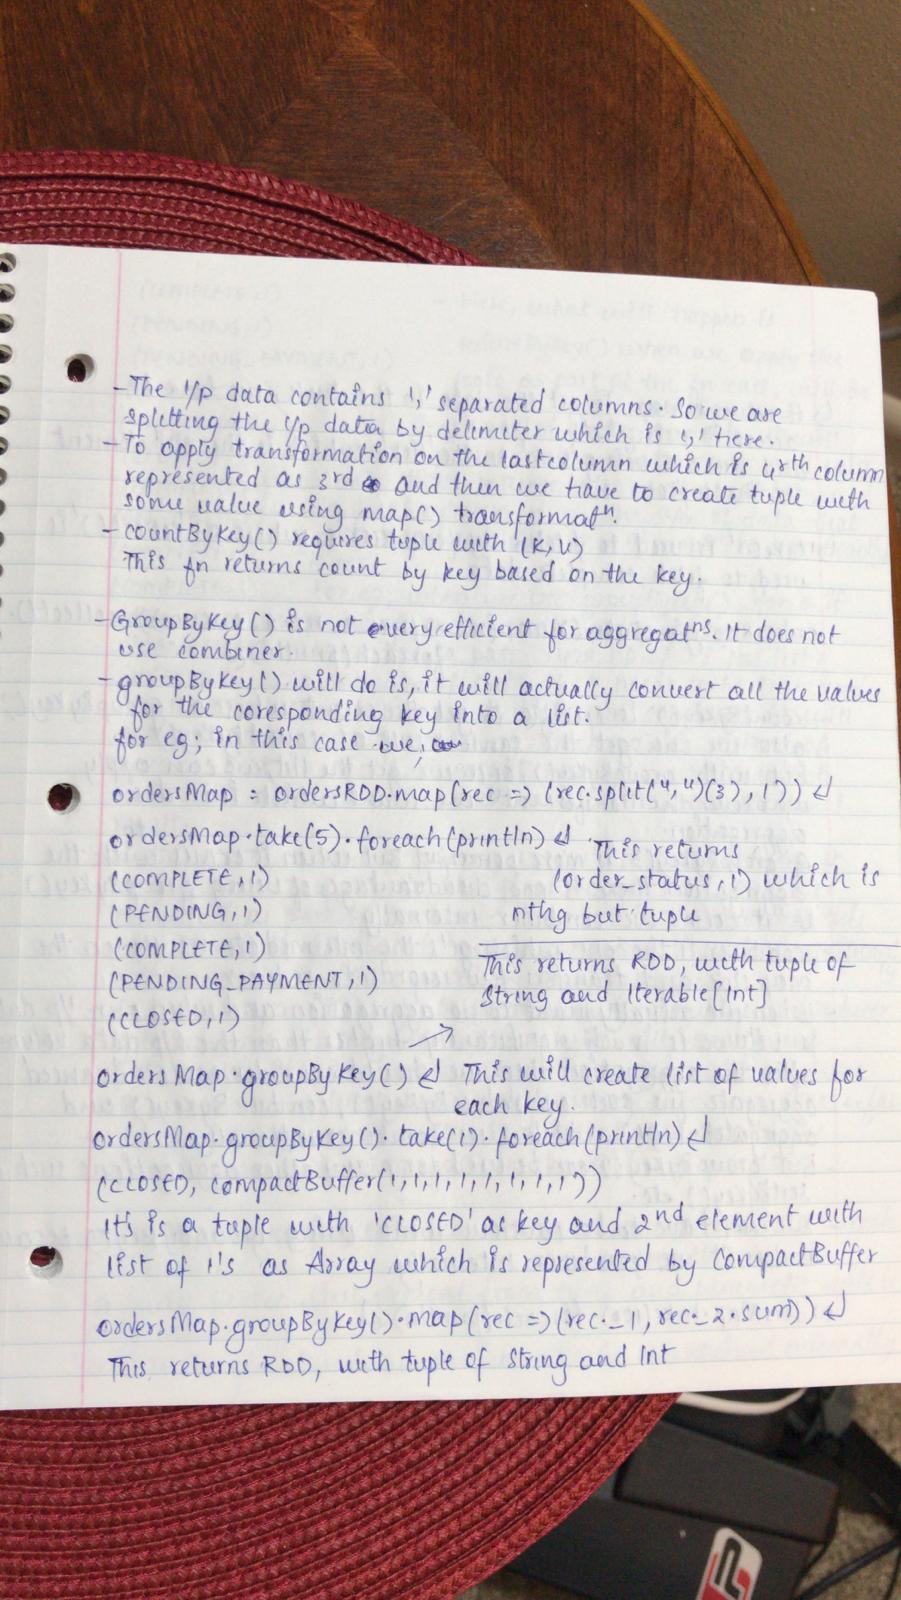 - The i/p data contains ',' separated columns. So we are
splitting the i/p data by delimiter which is ',' here.
- To apply transformation on the last column which is 4rth column
represented as 3rd and then we have to create tuple with
some value using map() transformatⁿ.
- countByKey() requires tuple with (K,V)
This fn returns count by key based on the key.
- GroupByKey() is not every efficient for aggregatⁿˢ. It does not
use combiner.
- groupByKey() will do is, it will actually convert all the values
for the coresponding key into a list.
for eg; in this case we,
ordersMap = ordersRDD.map(rec => (rec.split(",")(3), 1)) ↵
ordersMap.take(5).foreach(println) ↵ This returns
(COMPLETE,1) (order_status,1) which is
(PENDING,1) nthg but tuple
(COMPLETE,1) This returns RDD, with tuple of
(PENDING_PAYMENT,1) String and Iterable[Int]
(CLOSED,1)
ordersMap.groupByKey() ↵ This will create list of values for
each key.
ordersMap.groupByKey().take(1).foreach(println) ↵
(CLOSED, compactBuffer(1,1,1,1,1,1,1,1,1))
It's is a tuple with 'CLOSED' as key and 2nd element with
list of 1's as Array which is represented by CompactBuffer
ordersMap.groupByKey().map(rec => (rec._1, rec._2.sum)) ↵
This returns RDD, with tuple of String and Int